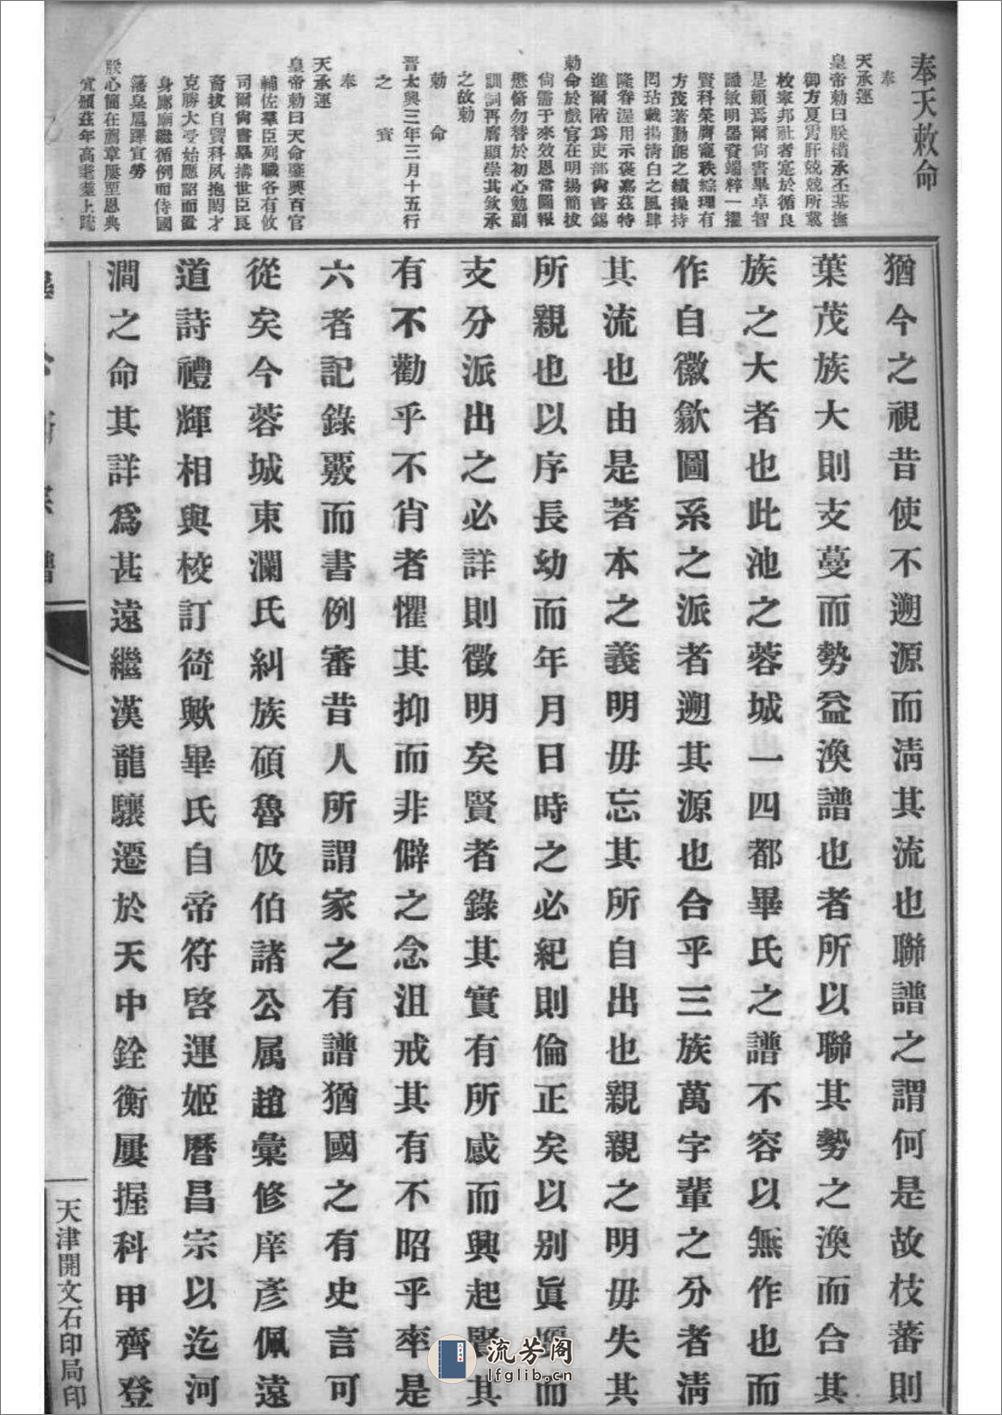 奉天敕命
奉
天承運
皇帝勅曰朕纘承丕基撫
御方夏宵肝兢兢所冀
枚寧邦社者寔於循良
是賴爲爾尙書畢卓智
識敏明器資端粹一擢
賢科榮膺寵秩綜理有
方茂著勤能之績操持
罔玷載揚淸白之風肆
隆眷渥用示褒嘉茲特
進爾階爲吏部尙書錫
勅命於戲官在明揚簡拔
尙需于來效恩當圖報
懋脩勿替於初心勉副
訓詞再膺顯崇其敘承
之故勅
勅命
晋太興三年三月十五行
之寶
奉
天承運
皇帝勅曰天命肇興百官
輔佐羣臣列職各有攸
司爾尙書畢搆世臣長
裔拔自賢科夙抱閎才
克勝大受始應詔而置
身廊廟繼循例而侍國
藩皇扈踔宣勞
朕心簡在薦章屢至恩典
宜頒茲年高耄耋上疏
猶今之視昔使不遡源而淸其流也聯譜之謂何是故枝蕃則
葉茂族大則支蔓而勢益渙譜也者所以聯其勢之渙而合其
族之大者也此池之蓉城一四都畢氏之譜不容以無作也而
作自徽歙圖系之派者遡其源也合乎三族萬字輩之分者淸
其流也由是著本之義明毋忘其所自出也親親之明毋失其
所親也以序長幼而年月日時之必紀則倫正矣以别眞贋而
支分派出之必詳則徵明矣賢者錄其實有所感而興起賢其
有不勸乎不肖者懼其抑而非僻之念沮戒其有不昭乎率是
六者記錄覈而書例審昔人所謂家之有譜猶國之有史言可
從矣今蓉城東瀾氏糾族碩魯伋伯諸公属趙彙修庠彥佩遠
道詩禮輝相與校訂猗歟畢氏自帝符啓運姬曆昌宗以迄河
澗之命其詳爲甚遠繼漢龍驤遷於天中銓衡屢握科甲齊登
畢公裔宗譜
天津開文石印局印
流芳阁
lfglib.cn